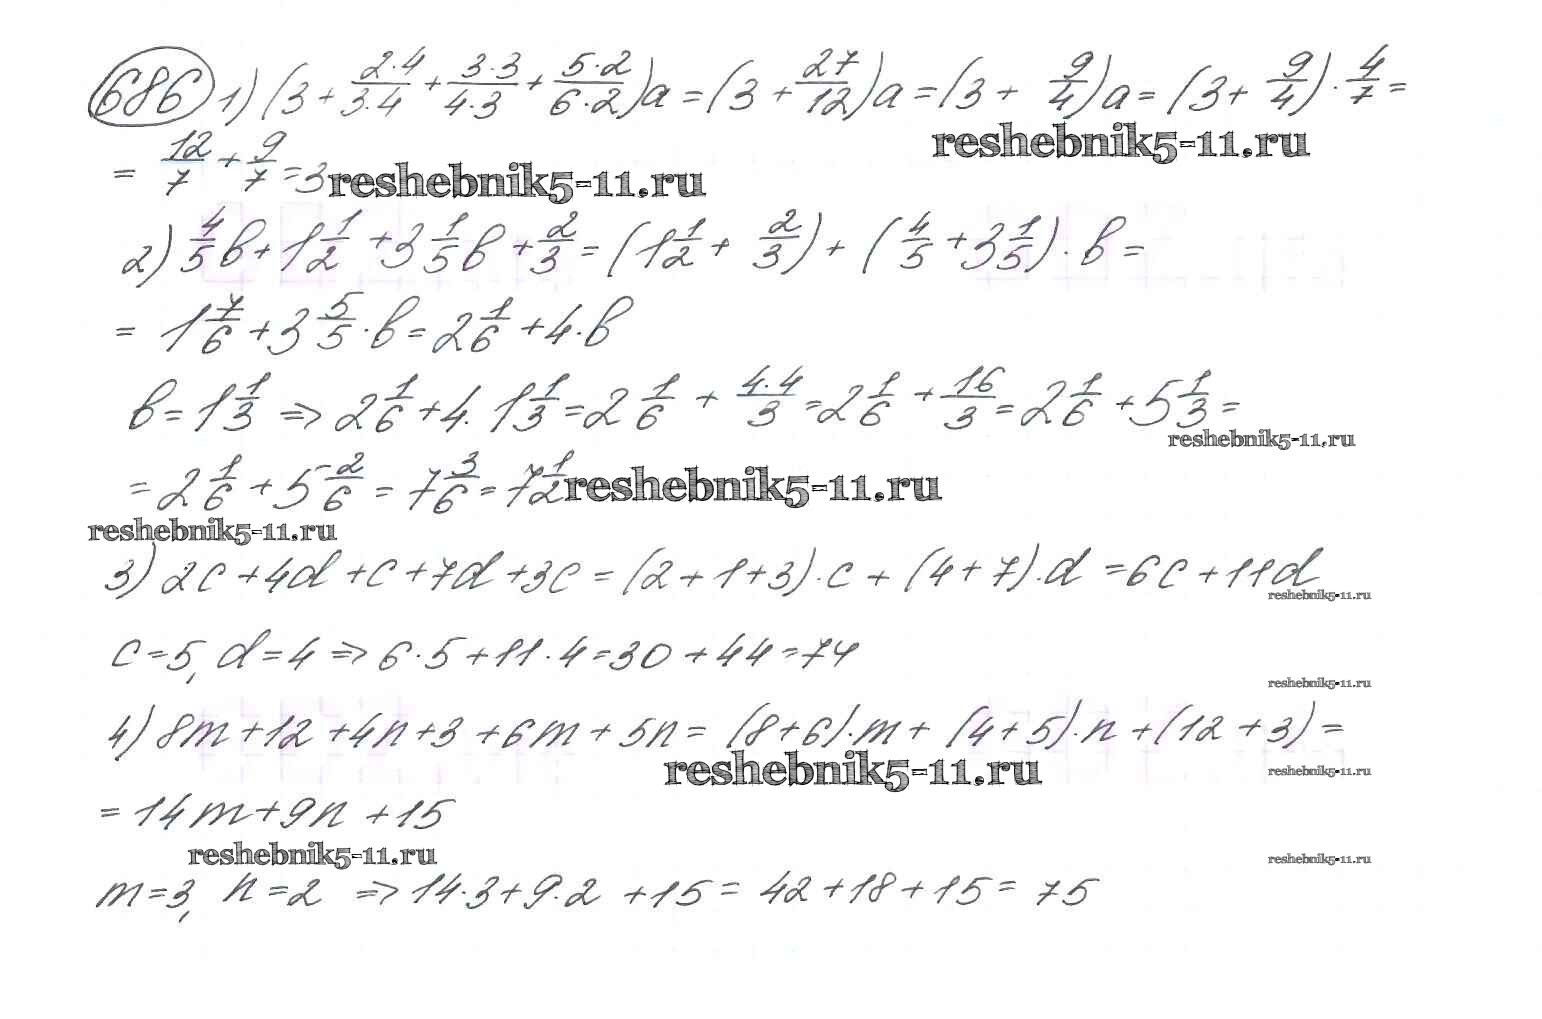 686 1) (3 + 2·4/3·4 + 3·3/4·3 + 5·2/6·2)a = (3 + 27/12)a = (3 + 9/4)a = (3 + 9/4) · 4/7 =
reshebnik5-11.ru
= 12/7 + 9/7 = 3
reshebnik5-11.ru
2) 4/5 b + 1 1/2 + 3 1/5 b + 2/3 = (1 1/2 + 2/3) + (4/5 + 3 1/5) · b =
= 1 7/6 + 3 5/5 · b = 2 1/6 + 4 · b
b = 1 1/3 => 2 1/6 + 4 · 1 1/3 = 2 1/6 + 4·4/3 = 2 1/6 + 16/3 = 2 1/6 + 5 1/3 =
reshebnik5-11.ru
= 2 1/6 + 5 2/6 = 7 3/6 = 7 1/2
reshebnik5-11.ru
reshebnik5-11.ru
3) 2c + 4d + c + 7d + 3c = (2 + 1 + 3) · c + (4 + 7) · d = 6c + 11d
reshebnik5-11.ru
c = 5, d = 4 => 6 · 5 + 11 · 4 = 30 + 44 = 74
reshebnik5-11.ru
4) 8m + 12 + 4n + 3 + 6m + 5n = (8 + 6) · m + (4 + 5) · n + (12 + 3) =
reshebnik5-11.ru
reshebnik5-11.ru
= 14m + 9n + 15
reshebnik5-11.ru
reshebnik5-11.ru
m = 3, n = 2 => 14 · 3 + 9 · 2 + 15 = 42 + 18 + 15 = 75